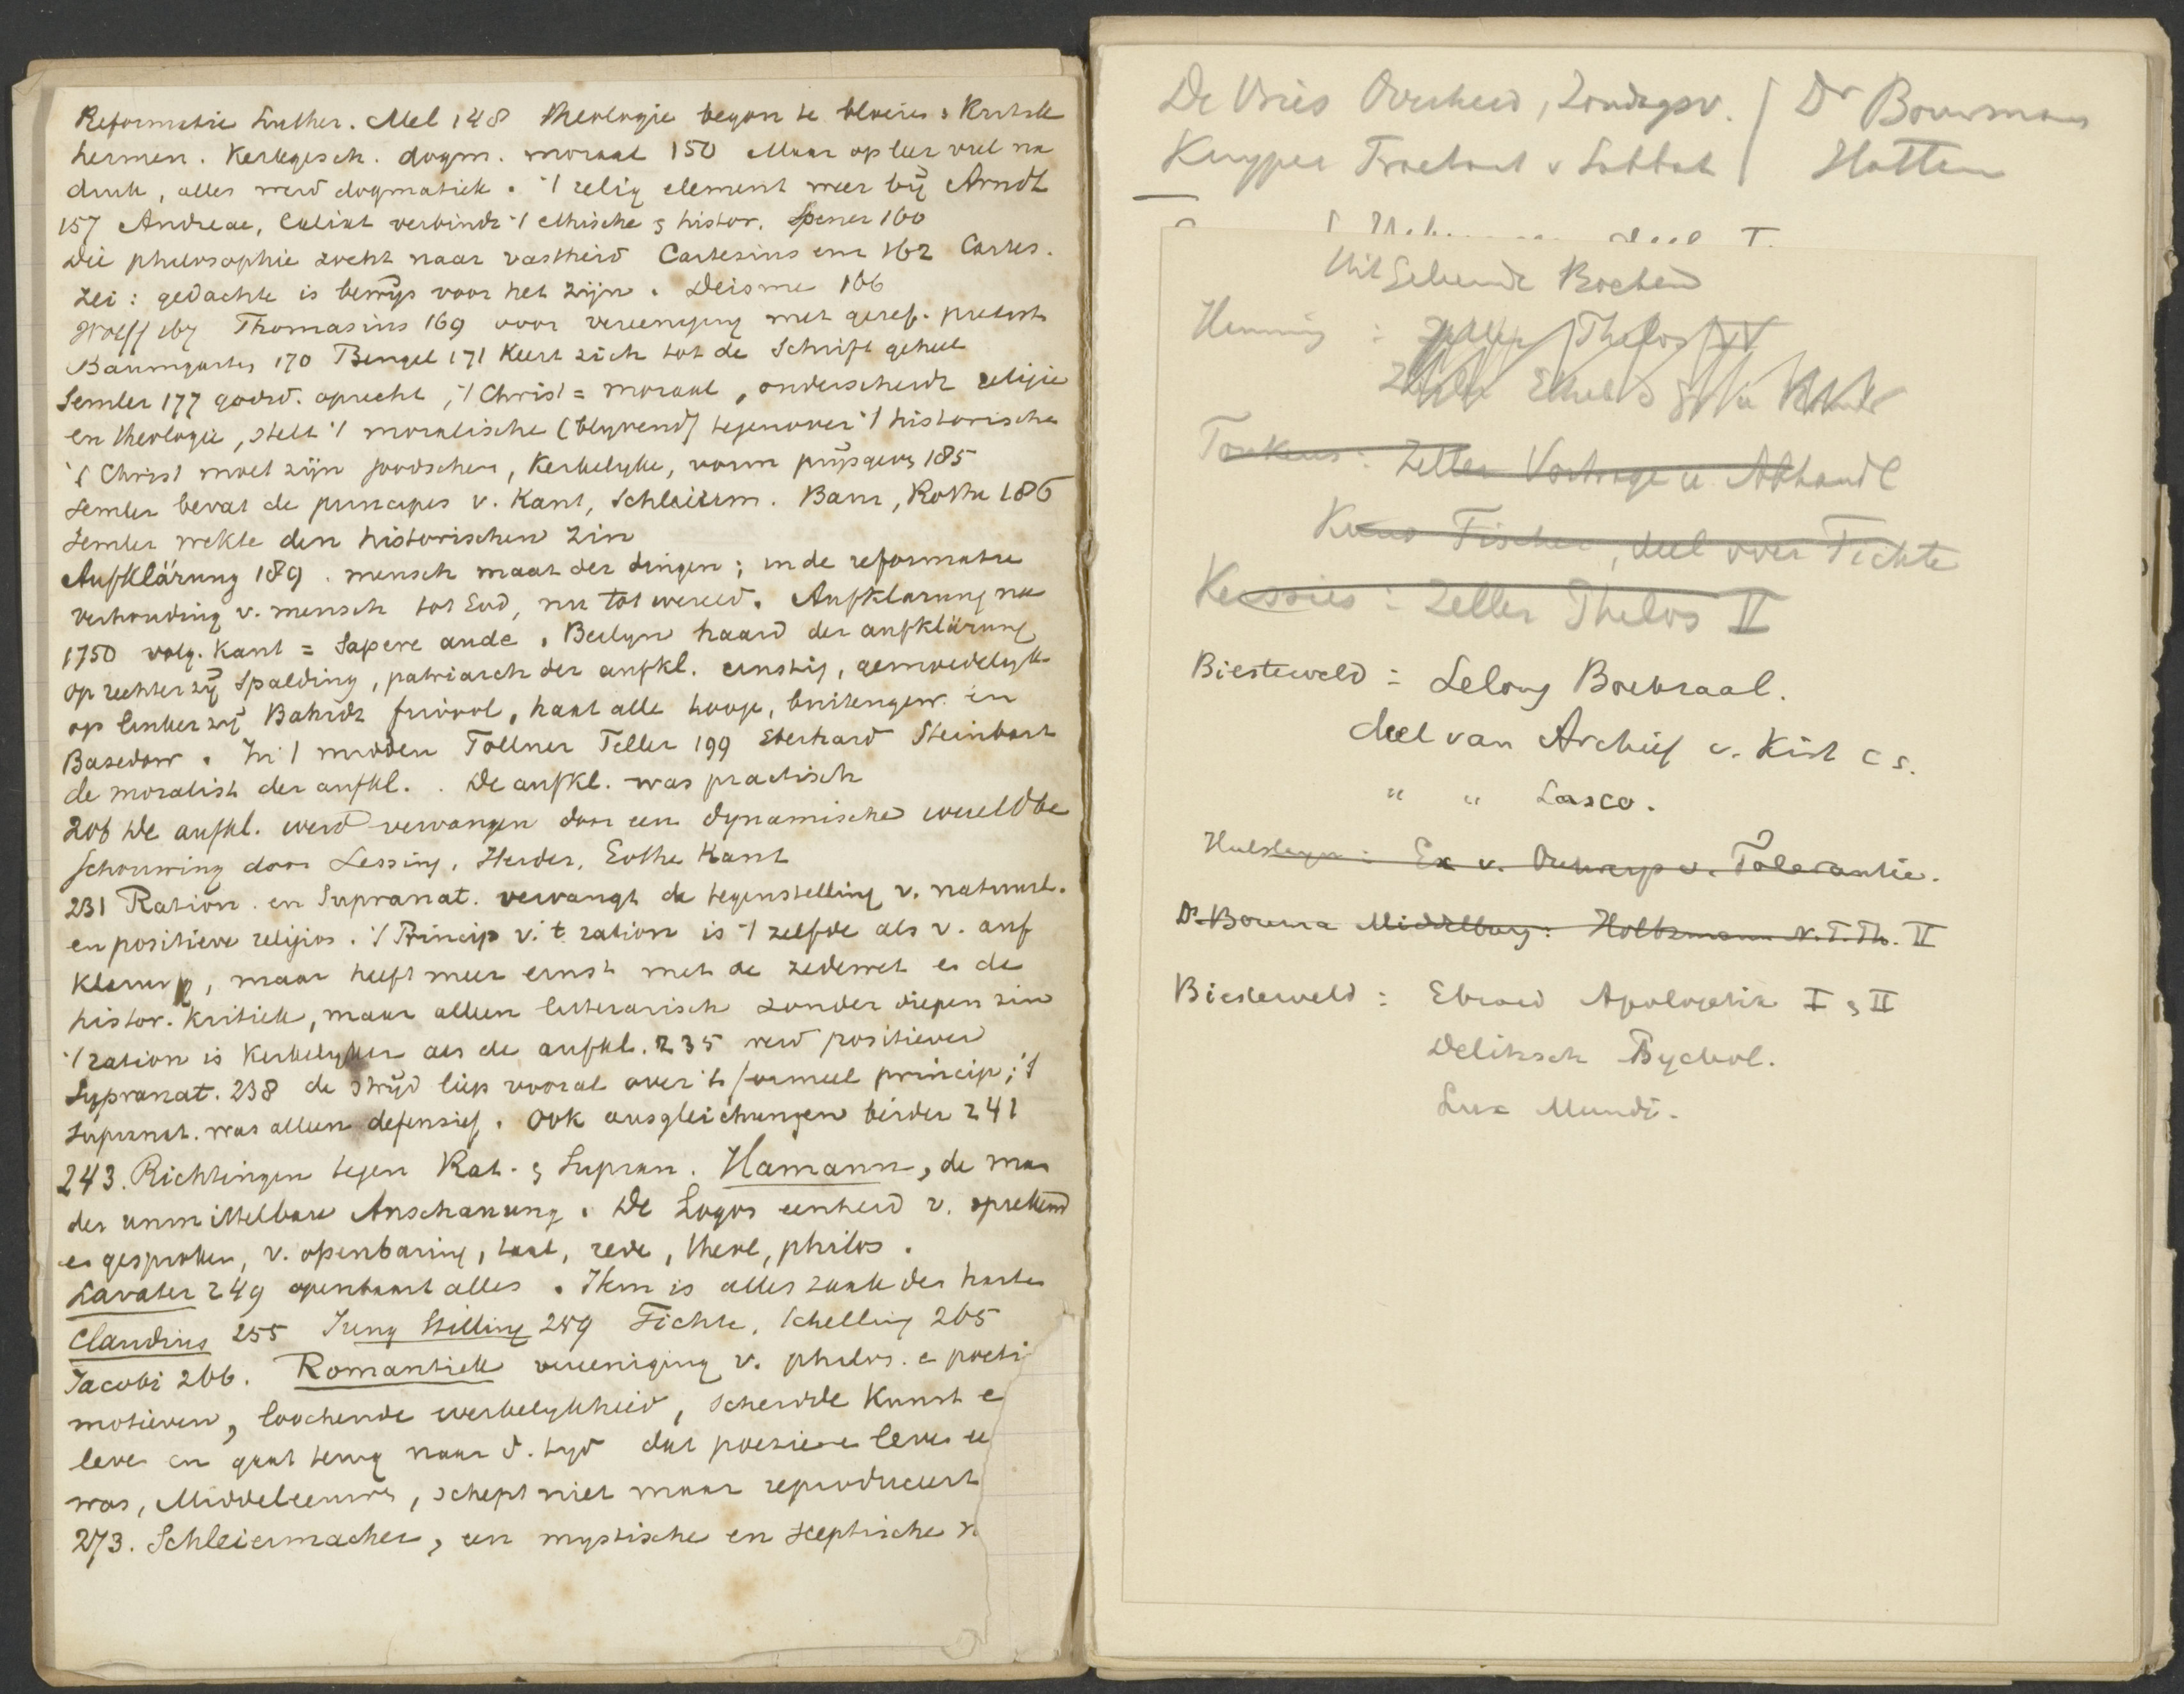 Reformatie Luther. Mel 148 Theologie begon te bloeien & Kritik
hermen. Kerkgesch. dogm. moraal 150 Maar op leer viel na
druk, alles werd dogmatiek. 't relig element weer bij Arndt
157 Andreae, Calixt verbindt 't ethische & histor. Spener 160
Die philosophie zocht naar vastheid Cartesius enz 162 Cartes.
zei: gedachte is bewijs voor het zijn. Deisme 166
Wolff 167 Thomasius 169 voor vereeniging met geref. protest
Baumgarten 170 Bengel 171 Keert zich tot de Schrift geheel
Semler 177 godsd. oprecht, 't Christ = moraal, onderscheidt religie
en theologie, stelt 't moralische (blyvend) tegenover 't historische
't Christ moet zijn joodschen, Kerkelyke, vorm prijsgeven 185
Semler bevat de principes v. Kant, Schleierm. Baur, Rothe 186
Semler wekte den historischen zin
Aufklärung 189. mensch maat der dingen; in de reformatie
verhouding v. mensch tot God, nu tot wereld. Aufklarung na
1750 volg. Kant = Sapere aude. Berlyn haard der aufklärung
op rechter zij Spalding, patriarch der aufkl. ernstig, gemoedelyk
op linker zij Bahrdt frivool, haat alle hooge, buitengew. en
Basedow. In 't midden Töllner Teller 199 Eberhard Steinbart
de moralist der aufkl. . De aufkl. was practisch
206 De aufkl. werd vervangen door een dynamische wereldbe
schouwing door Lessing, Herder, Göthe Kant
231 Ration. en Supranat. vervangt de tegenstelling v. natuurl.
en positieve religios. 't Princip v. t ration is 't zelfde als v. auf
klarung, maar heeft meer ernst met de zedewet en de
histor. Kritiek, maar alleen litterarisch zonder diepen zin
't ration is Kerkelyker als de aufkl. 235 werd positiever
Supranat. 238 de stryd liep vooral over 't formeel princip; 't
supranat. was alleen defensief. Ook ausgleichungen beider 241
243. Richtingen tegen Rat. & Supran. Hamann, de man
der unmittelbare Anschauung. De Logos eenheid v. sprekend
en gesproken, v. openbaring, taal, rede, theol, philos.
Lavater 249 openbaart alles. Hem is alles zaak des harten
Claudius 255 Jung Stilling 259 Fichte, Schelling 265
Jacobi 266. Romantiek vereeniging v. philos. e poeti
motieven, loochende werkelykheid, scheidde Kunst e
leven en gaat terug naar d. tyd dat poezie en leven ee
was, Middeleeuwen, schept niet maar reproduceert
273. Schleiermacher, een mystische en sceptische
De Vries Overheid, Zondagsv.
Kuyper Tractaat v Sabbat
Dr Bouwman
Hattem
Uitgeleende Boeken
Henning : Zeller Philos IV
Tonkens: Zeller Vortrage u Abhandl
Kuno Fischer, deel over Fichte
Kessies: Zeller Philos II
Biesterveld = Lelong Boekzaal.
deel van Archief v. Kist c s.
" " Lasco.
Ex v. Ontwerp v. Tolerantie.
Dr Bouma Middelburg: Holtzmann N.T.Th. II
Biesterveld : Ebrard Apologetik I & II
Delitzsch Psychol.
Lux Mundi.